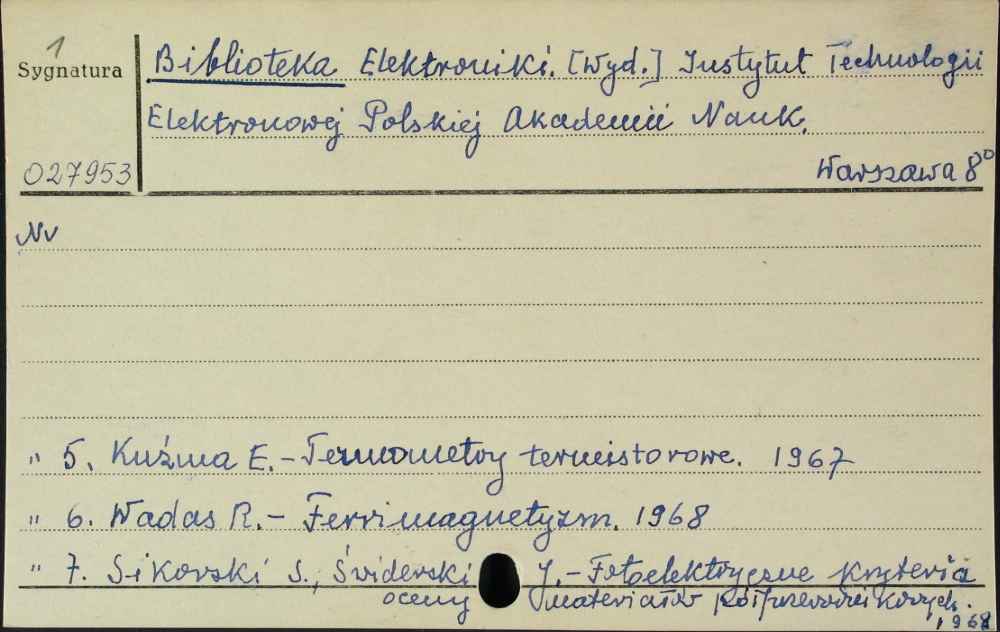 1
Sygnatura
Biblioteka Elektroniki. [Wyd.] Instytut Technologii
Elektronowej Polskiej Akademii Nauk.
027953
Warszawa 8°
Nr
" 5. Kuźma E. – Termometry termistorowe. 1967
" 6. Wadas R. – Ferrimagnetyzm. 1968
" 7. Sikorski S., Świderski J. – Fotoelektryczne kryteria
oceny materiałów półprzewodnikowych.
1968